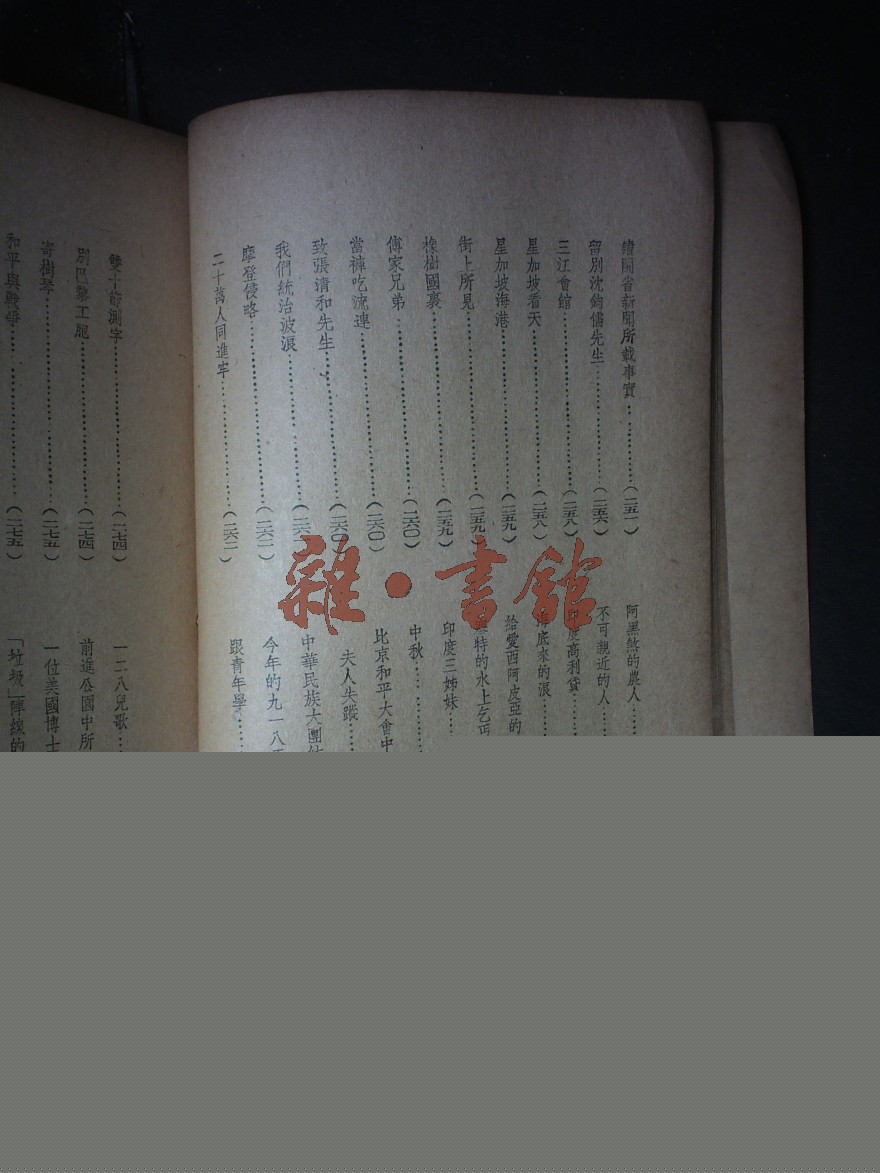 讀閩省新聞所載事實……(二五一)
留別沈鈞儒先生……(二五六)
三江會館……(二五八)
星加坡看天……(二五八)
星加坡海港……(二五九)
街上所見……(二五九)
橡樹國裏……(二五九)
傅家兄弟……(二六〇)
當褲吃流連……(二六〇)
致張清和先生……(二六〇)
我們統治波浪……(二六
摩登侵略……(二六二)
二十萬人同進牢……(二六二)
阿黑煞的農人……
不可親近的人……
印度高利貸……
底來的淚……
給愛西阿皮亞的
特的水上乞丐
印度三姊妹……
中秋……
比京和平大會中
夫人失蹤……
中華民族大團結
今年的九一八
跟青年學……
雙十節測字……(二七四)
別巴黎工胞……(二七四)
寄樹琴……(二七五)
和平與戰爭……(二七五)
一二八兒歌……
前進公園中所
一位美國博士
「垃圾」陣線的
雜·書館